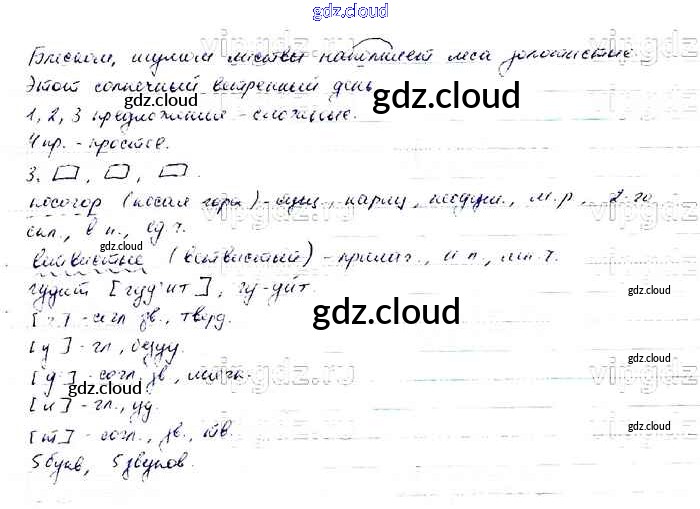 gdz.cloud
Блеском, шумом листвы наполняет леса золотистые
Этот солнечный ветренный день
gdz.cloud
gdz.cloud
1, 2, 3 предложения - сложные.
4 пр. - простое.
3. , , .
косогор (косая гора) - сущ., нариц., неодуш., м.р., 2-го
vipgdz.ru
скл., в п., ед.ч.
gdz.cloud
ветвистые (ветвистый) - прилаг., и п., мн.ч.
гудит [гуд'ит], гу-дит.
gdz.cloud
gdz.cloud
[г] - согл зв., тверд.
[у] - гл., безуд.
vipgdz.ru
[д'] - согл., зв., мягк.
gdz.cloud
[и] - гл., уд.
gdz.cloud
[т] - согл., зв., тв.
5 букв, 5 звуков.